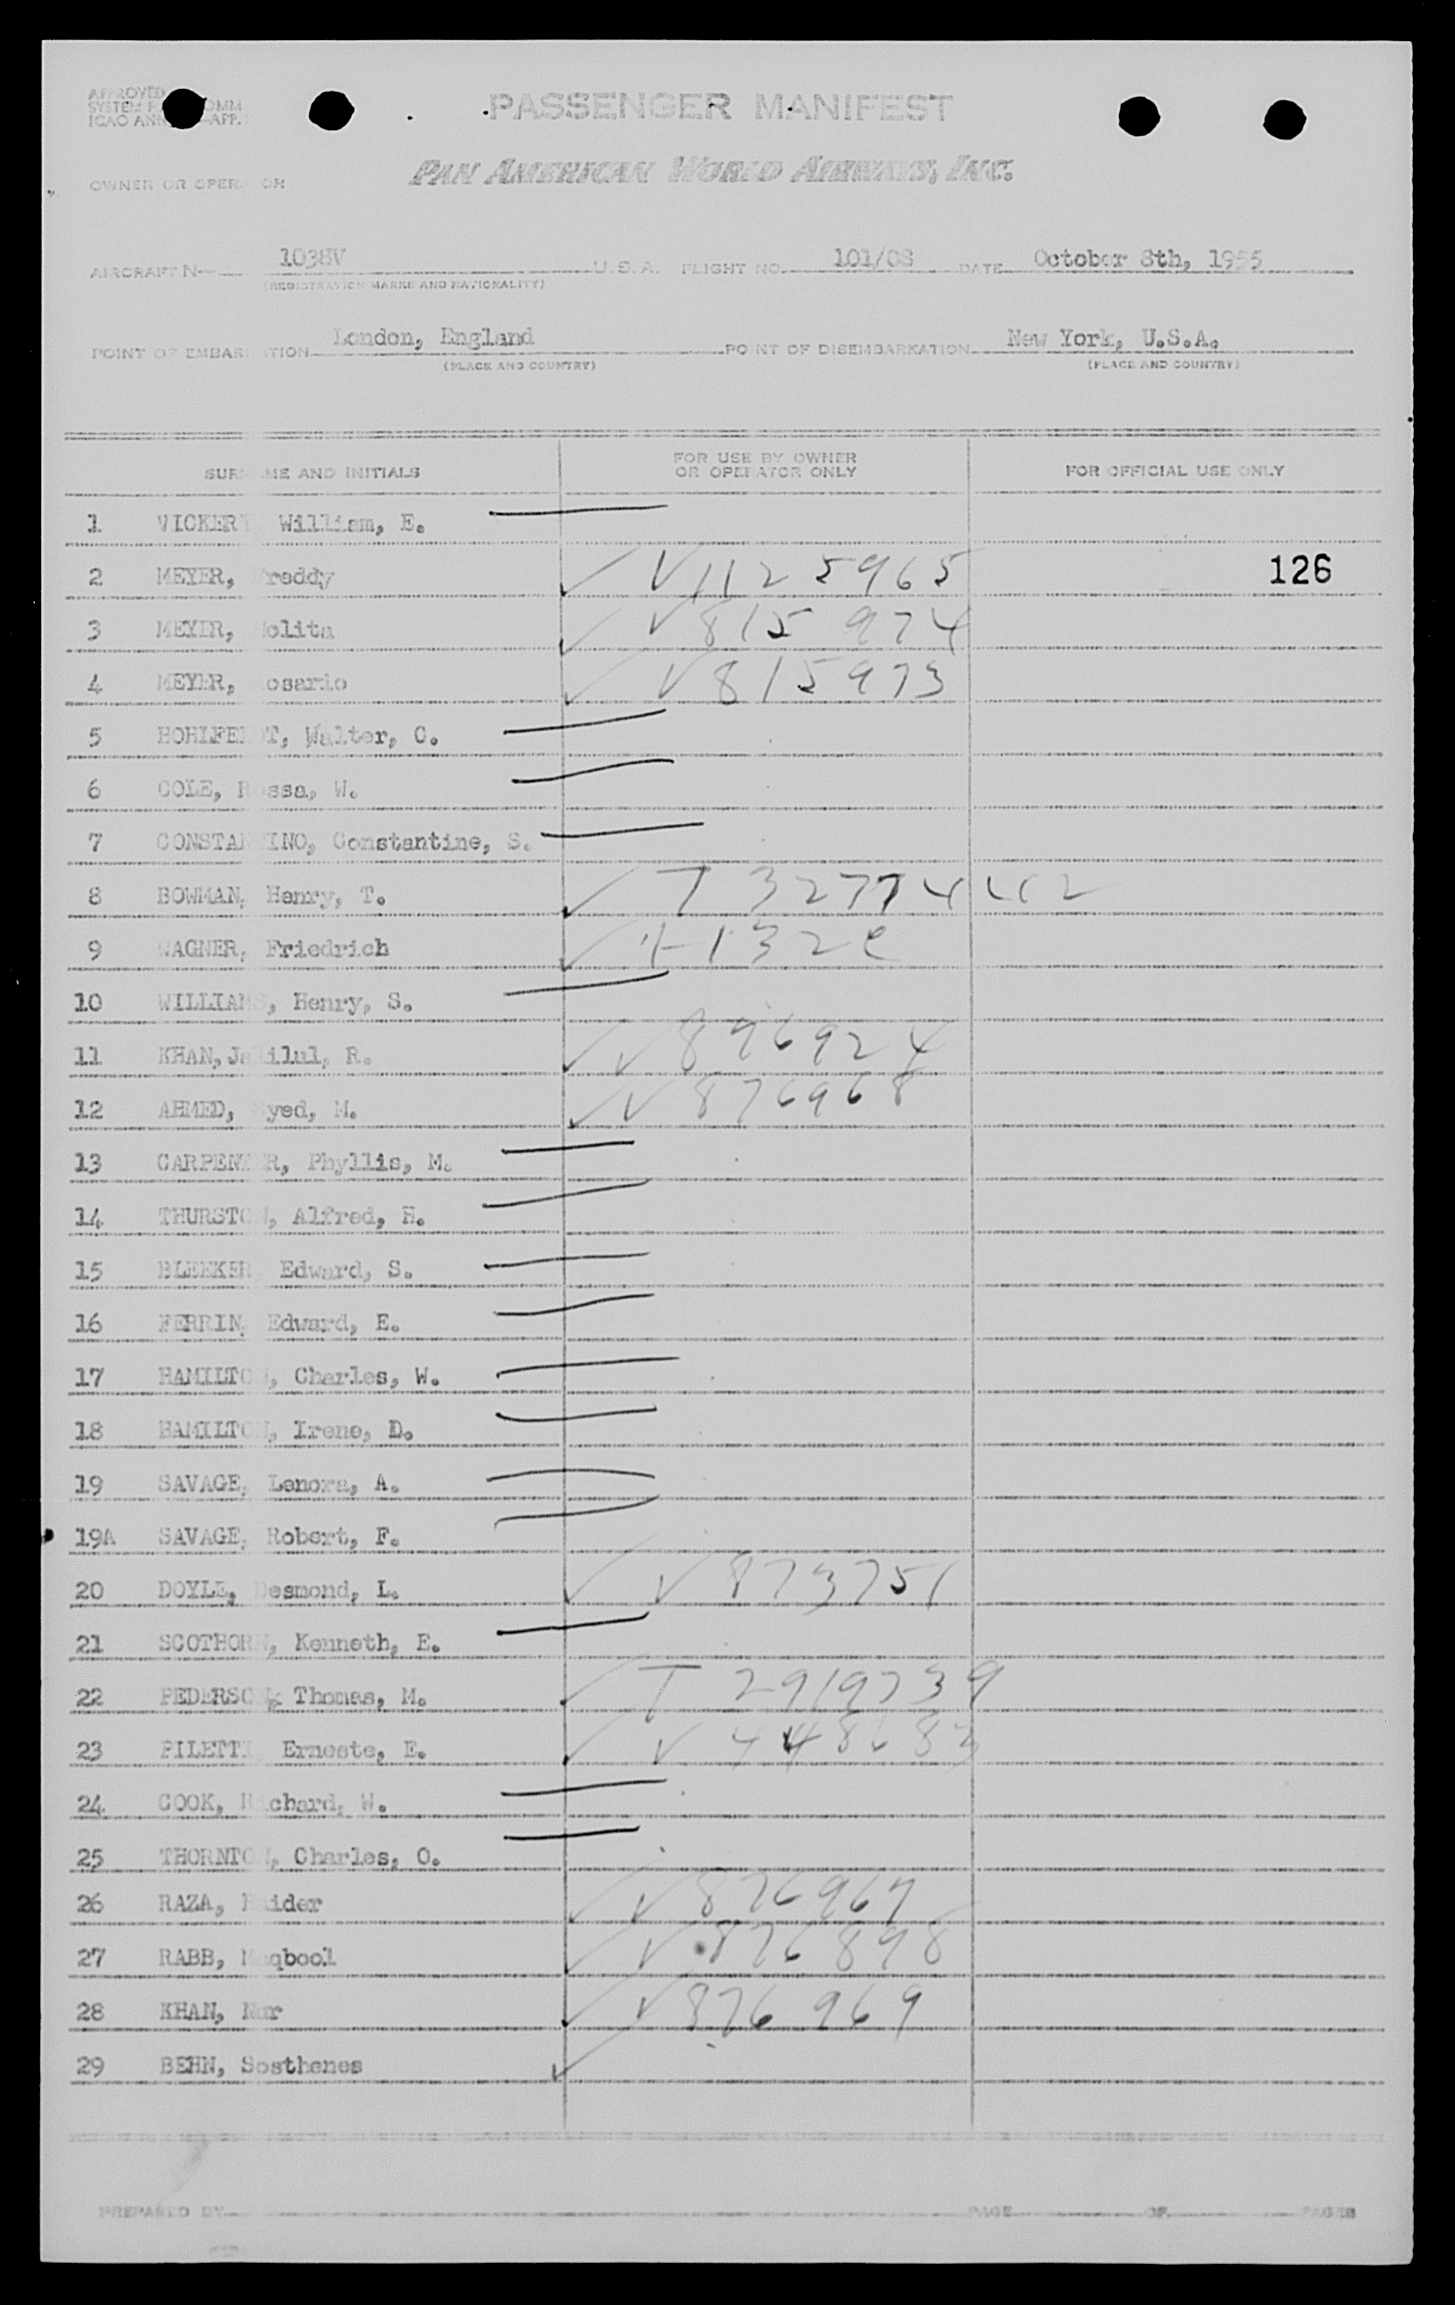 APPROVED
SYSTEM COMM
ICAO ANN -APP.
PASSENGER MANIFEST
PAN AMERICAN WORLD AIRWAYS, INC.
OWNER OR OPERATOR
AIRCRAFT N- 1038V U.S.A. FLIGHT NO. 101/08 DATE October 8th, 1955
(REGISTRATION MARKS AND NATIONALITY)
POINT OF EMBARKATION London, England POINT OF DISEMBARKATION New York, U.S.A.
(PLACE AND COUNTRY) (PLACE AND COUNTRY)
SURNAME AND INITIALS FOR USE BY OWNER OR OPERATOR ONLY FOR OFFICIAL USE ONLY
1 VICKERY William, E.
2 MEYER, Freddy V 1125965 126
3 MEYER, Lolita V 815974
4 MEYER, Rosario V 815973
5 Walter, C.
6 COLE, W.
7 CONSTANTINO, Constantine, S.
8 BOWMAN, Henry, T. T 32774442
9 WAGNER, Friedrich
10 WILLIAMS, Henry, S.
11 KHAN, R. V 896924
12 AHMED, Syed, M. V 876968
13 CARPENTER, Phyllis, M.
14 THURSTON, Alfred, H.
15 BLEEKER, Edward, S.
16 FERRIN, Edward, E.
17 HAMILTON, Charles, W.
18 HAMILTON, Irene, D.
19 SAVAGE, Lenora, A.
19A SAVAGE, Robert, F.
20 DOYLE, Desmond, L. V 873751
21 SCOTHORN, Kenneth, E.
22 PEDERSON, Thomas, M. T 2919739
23 PILETTI, Erneste, E. V
24 COOK, Richard, W.
25 THORNTON, Charles, O.
26 RAZA, Haider V 876967
27 RABB, Maqbool V 876898
28 KHAN, Nur V 876969
29 BEHN, Sosthenes
PREPARED BY PAGE OF PAGES